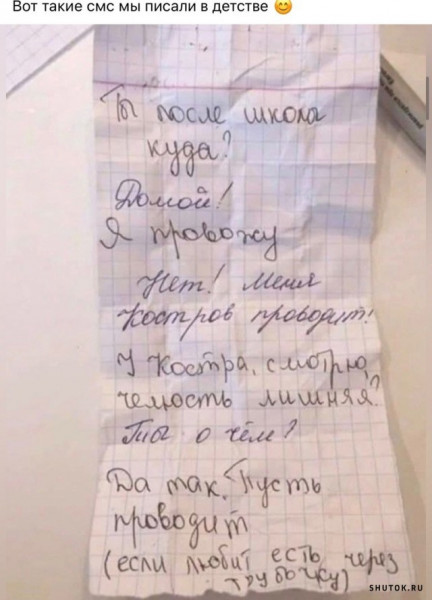 Вот такие смс мы писали в детстве 😊
Ты после школы
куда?
Домой!
Я провожу
Нет! Меня
Костров проводит!
У Костра, смотрю,
челюсть лишняя?
Ты о чём?
Да так. Пусть
проводит
(если любит есть через
трубочку)
SHUTOK.RU